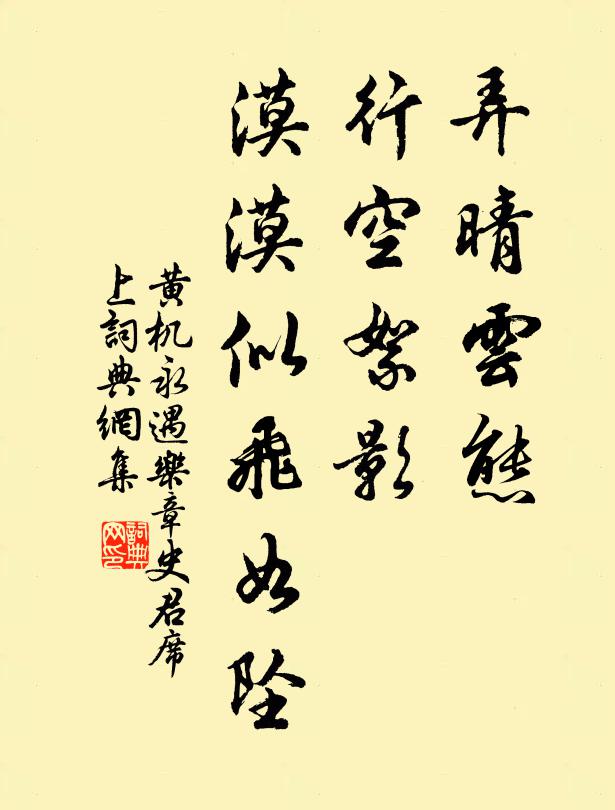 弄晴雲態
行空絮影
漠漠似飛如坠
黄机永遇樂章史君席
上詞典網集
詞典
网印